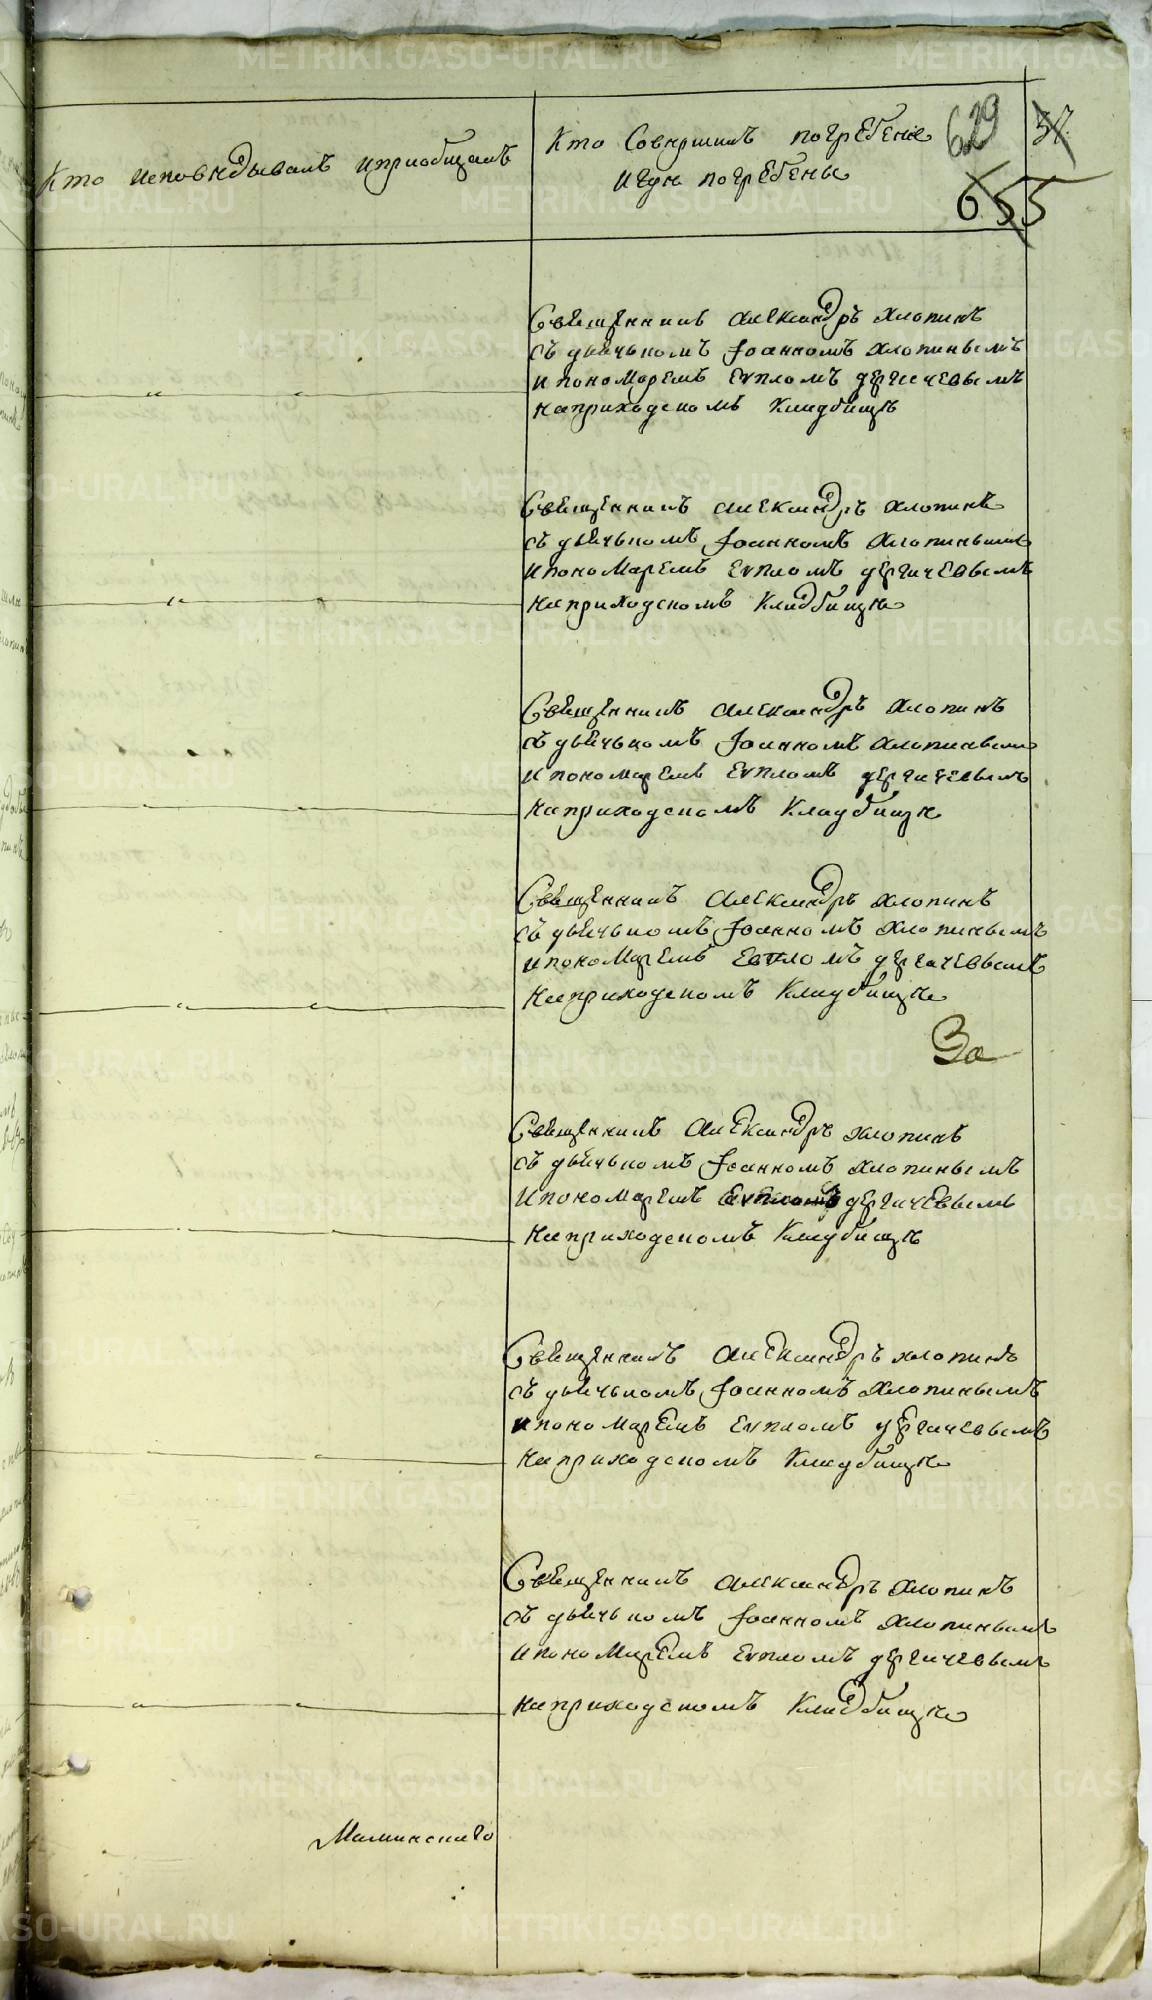 Кто исповѣдывалъ и приобщалъ
Кто Совершилъ погребение
и гдѣ погребены
629
37.
655
Священникъ Александръ Хлопинъ
съ дьячькомъ Іоанномъ Хлопинымъ
и пономаремъ Еѵпломъ Дергачевымъ
на приходскомъ Кладбищѣ
Священникъ Александръ Хлопинъ
съ дьячькомъ Іоанномъ Хлопинымъ
и пономаремъ Еѵпломъ Дергачевымъ
на приходскомъ Кладбищѣ
Священникъ Александръ Хлопинъ
съ дьячькомъ Іоанномъ Хлопинымъ
и пономаремъ Еѵпломъ Дергачевымъ
на приходскомъ Кладбищѣ
Священникъ Александръ Хлопинъ
съ дьячькомъ Іоанномъ Хлопинымъ
и пономаремъ Евпломъ Дергачевымъ
на приходскомъ Кладбищѣ
За
Священникъ Александръ Хлопинъ
съ дьячькомъ Іоанномъ Хлопинымъ
и пономаремъ Еѵпломъ Дергачевымъ
на приходскомъ Кладбищѣ
Священникъ Александръ Хлопинъ
съ дьячькомъ Іоанномъ Хлопинымъ
и пономаремъ Еѵпломъ Дергачевымъ
на приходскомъ Кладбищѣ
Священникъ Александръ Хлопинъ
съ дьячькомъ Іоанномъ Хлопинымъ
и пономаремъ Еѵпломъ Дергачевымъ
на приходскомъ Кладбищѣ
Маминскаго
METRIKI.GASO-URAL.RU